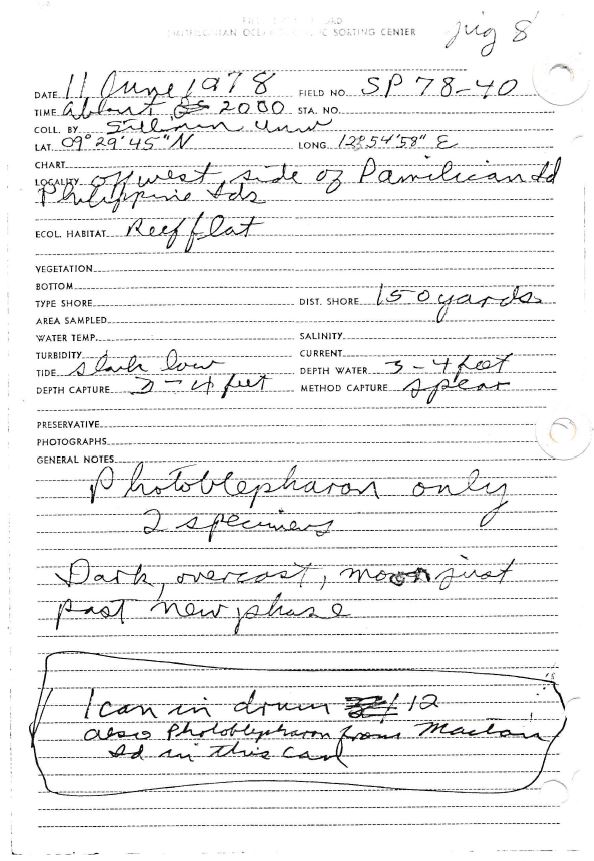 FIELD RECORD
SMITHSONIAN OCEANOGRAPHIC SORTING CENTER
jug 8
DATE 11 June 1978 FIELD NO. SP 78-40
TIME about 2000 STA. NO.
COLL. BY Silliman Univ
LAT. 09°29'45"N LONG. 123°54'58" E
CHART
LOCALITY off west side of Pamilican Id
Philippine Ids
ECOL. HABITAT Reef flat
VEGETATION
BOTTOM
TYPE SHORE DIST. SHORE 150 yards
AREA SAMPLED
WATER TEMP. SALINITY
TURBIDITY CURRENT
TIDE slack low DEPTH WATER 3-4 feet
DEPTH CAPTURE 3-4 feet METHOD CAPTURE spear
PRESERVATIVE
PHOTOGRAPHS
GENERAL NOTES
Photoblepharon only
2 specimens
Dark, overcast, moon just
past new phase
1 can in drum 12
also Photoblepharon from Mactan
Id in this can